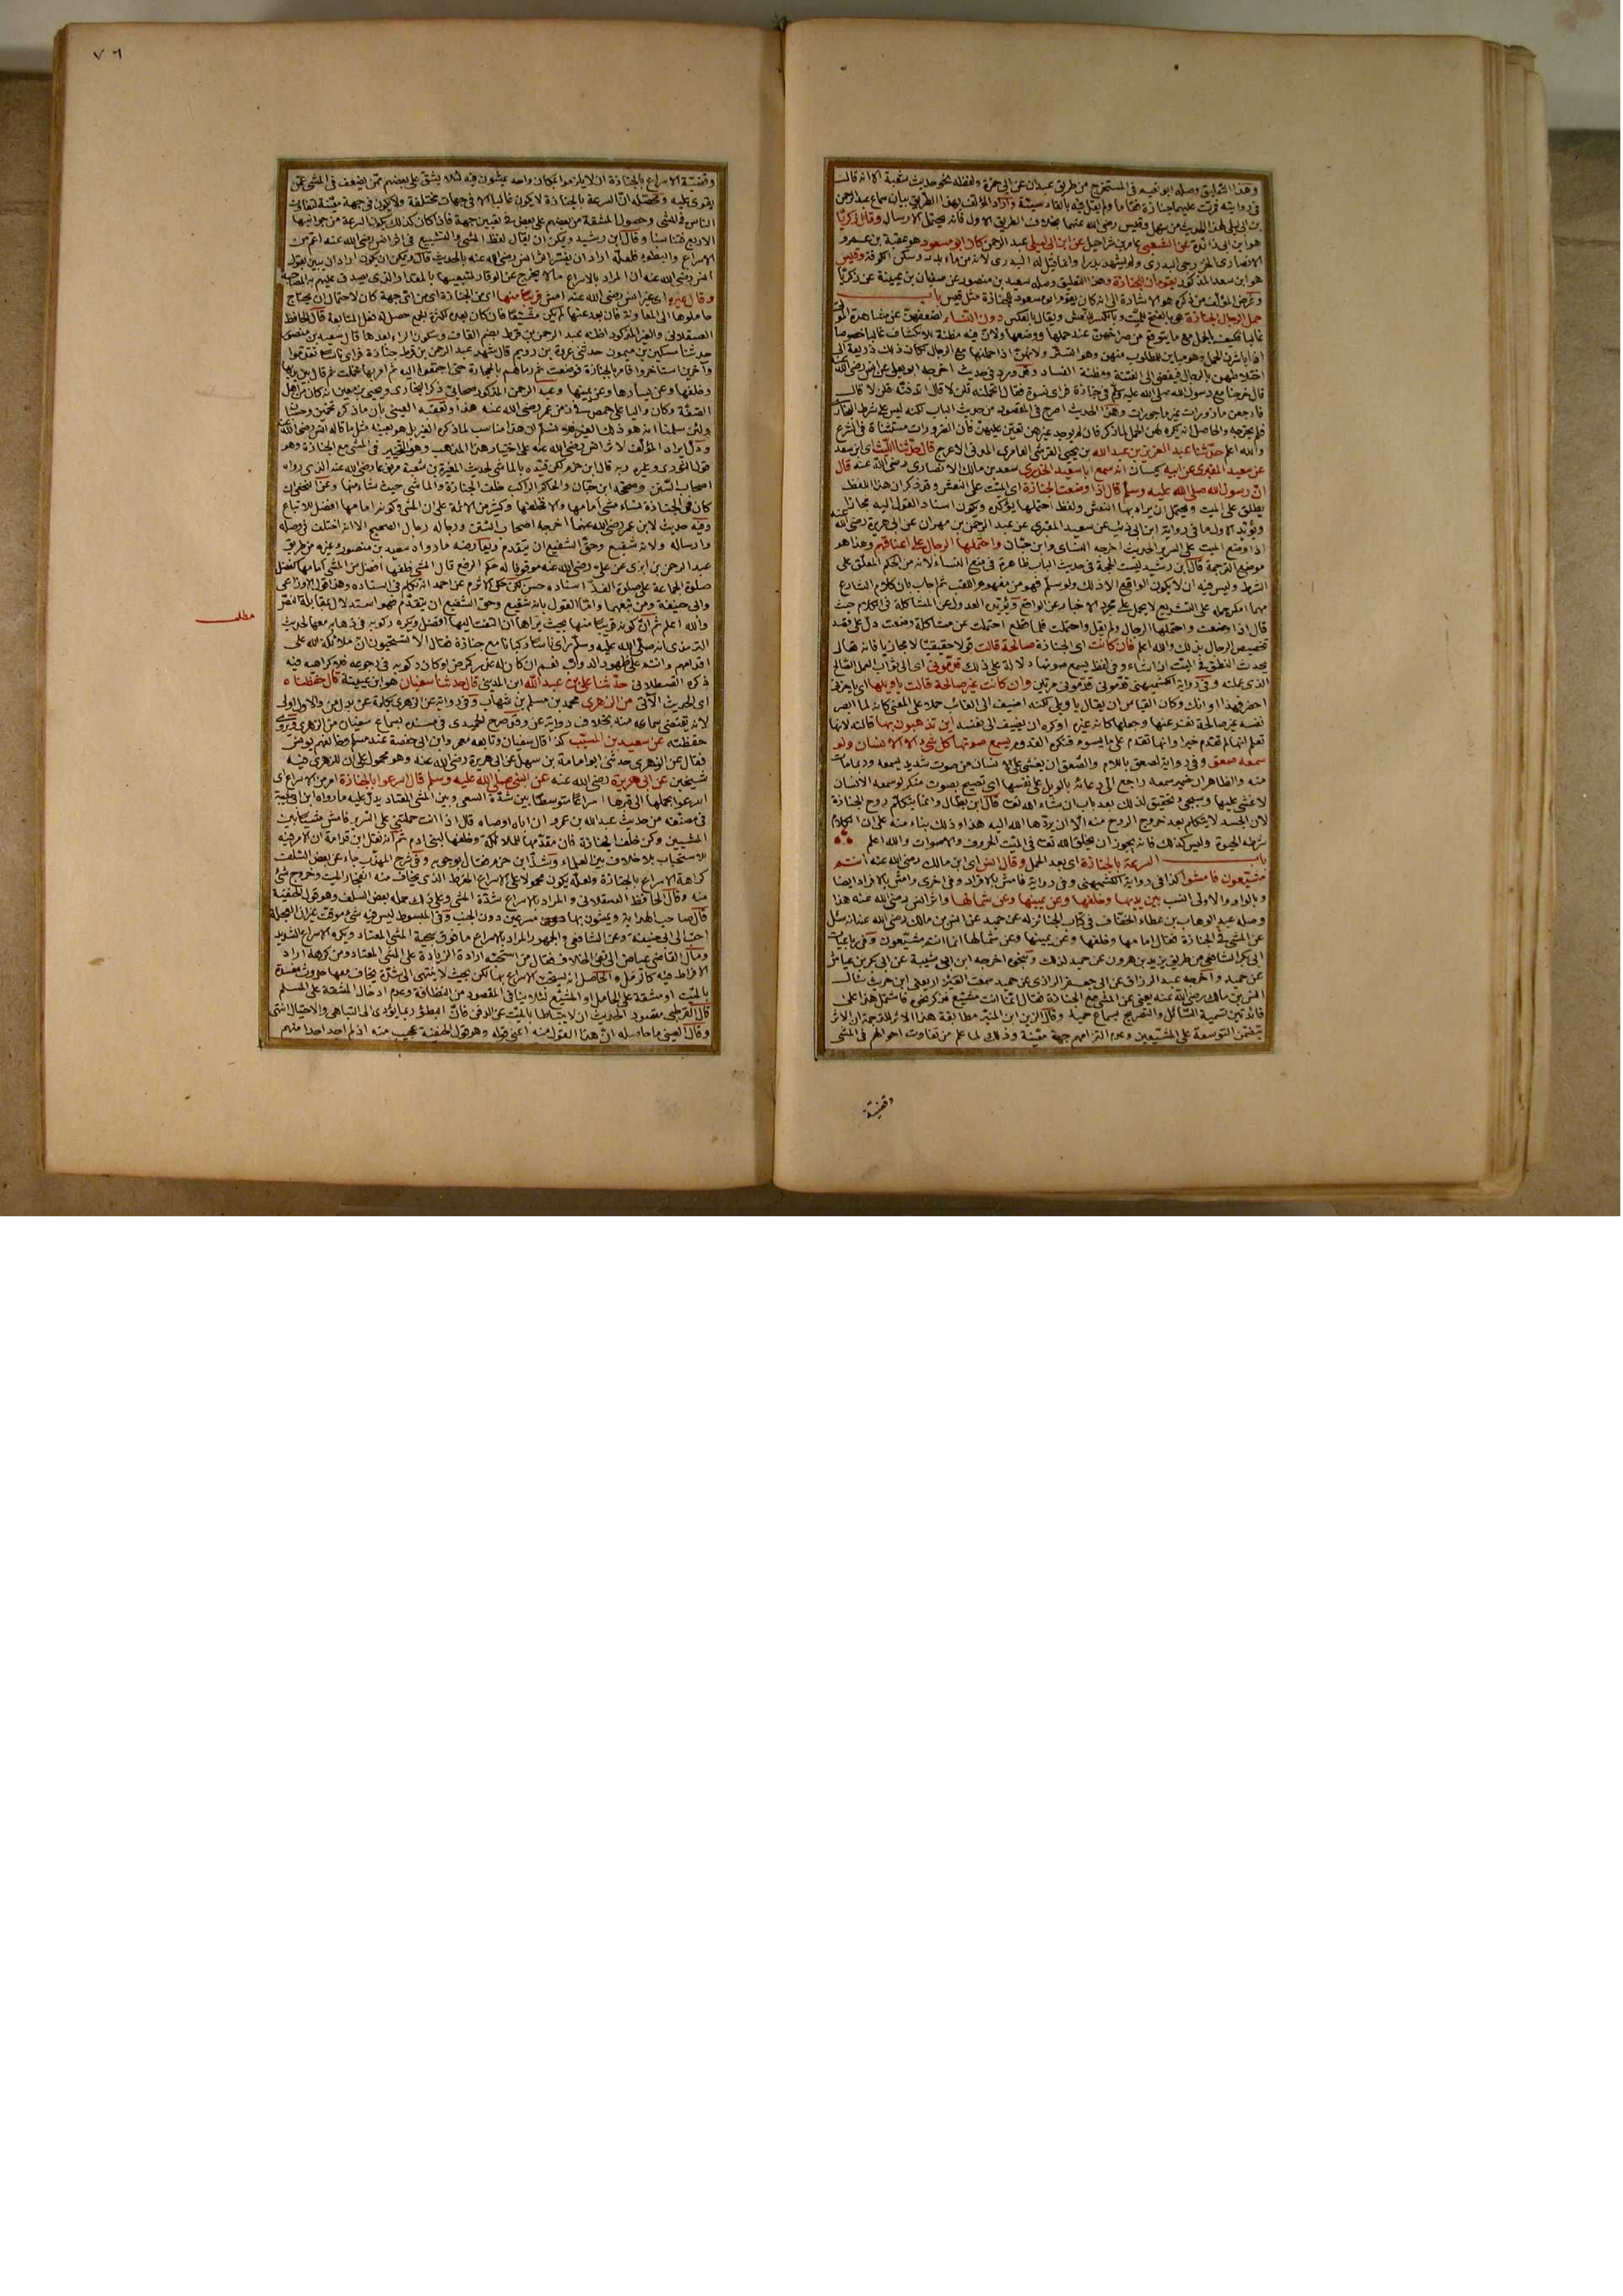 وهذا التعليق وصله ابو نعيم في المستخرج من طريق عبدان عن ابي حمزة ولفظه نحو حديث شعبة الا انه قال
في روايته فمرت عليهما جنازة فقاما ولم يقل فيه بالقادسية واراد المؤلف بهذا الطريق بيان سماع عبد الرحمن
بن ابي ليلى لهذا الحديث من سهل وقيس رضي الله عنهما بخلاف الطريق الاول فانه يحتمل الارسال وقال زكريا
هو ابن ابي زائدة عن الشعبي عامر بن شراحيل عن ابن ابي ليلى عبد الرحمن كان ابو مسعود هو عقبة بن عمرو
الانصاري الخزرجي البدري ولم يشهد بدرا وانما قيل له البدري لانه من ماء بدر وسكن الكوفة وقيس
هو ابن سعد المذكور يقومان للجنازة وهذا التعليق وصله سعيد بن منصور عن سفيان بن عيينة عن زكريا
وغرض المؤلف من ذكره هو الاشارة الى انه كان يقوم ابو مسعود للجنازة مثل قيس باب
حمل الرجال الجنازة هي بالفتح للميت وبالكسر للنعش ويقال بالعكس دون النساء لضعفهن عن مشاهدة الموتى
غالبا فكيف بالحمل مع ما يتوقع من صراخهن عند حملها ووضعها ولان فيه مظنة للانكشاف غالبا خصوصا
اذا باشرن الحمل وهو مباين للمطلوب منهن وهو التستر ولانهن اذا حملنها مع الرجال لكان ذلك ذريعة الى
اختلاطهن بالرجال فيفضي الى الفتنة ومظنة الفساد وقد ورد في حديث اخرجه ابو يعلى عن انس رضي الله عنه
قال خرجنا مع رسول الله صلى الله عليه وسلم في جنازة فراى نسوة فقال اتحملنه قلن لا قال اتدفنه قلن لا قال
فارجعن مأزورات غير مأجورات وهذا الحديث اصرح في المقصود من حديث الباب لكنه ليس على شرط البخاري
فلم يخرجه والحاصل انه يكره لهن الحمل لما ذكر فان لم يوجد غيرهن تعين عليهن فان الضرورات مستثناة في الشرع
والله اعلم حدثنا عبد العزيز بن عبد الله بن يحيى القرشي العامري المدني الاعرج قال حدثنا الليث اي ابن سعد
عن سعيد المقبري عن ابيه كيسان انه سمع ابا سعيد الخدري سعد بن مالك الانصاري رضي الله عنه قال
ان رسول الله صلى الله عليه وسلم قال اذا وضعت الجنازة اي الميت على النعش وقد ذكر ان هذا اللفظ
يطلق على الميت ويحتمل ان يراد بها النعش ولفظ احتملها يؤكده ويكون اسناد القول اليه مجازا
ويؤيد الاول ما في رواية ابن ابي ذئب عن سعيد المقبري عن عبد الرحمن بن مهران عن ابي هريرة رضي الله عنه
اذا وضع الميت على السرير الحديث اخرجه النسائي وابن حبان واحتملها الرجال على اعناقهم وهذا هو
موضع الترجمة قال ابن رشيد ليست الحجة في حديث الباب ظاهرة في منع النساء لانه من الحكم المعلق على
الشرط وليس فيه ان لا يكون الواقع الا ذلك ولو سلم فهو من مفهوم اللقب ثم اجاب بان كلام الشارع
مهما امكن حمله على التشريع لا يحمل على مجرد الاخبار عن الواقع ويؤيده العدول عن المشاكلة في الكلام حيث
قال اذا وضعت واحتملها الرجال ولم يقل واحتملت فلما قطع احتملت عن مشاكلة وضعت دل على قصد
تخصيص الرجال بذلك والله اعلم فان كانت اي الجنازة صالحة قالت قولا حقيقيا لا مجازيا فانه تعالى
يحدث النطق في الميت ان شاء وفي لفظ يسمع صوتها دلالة على ذلك قدموني اي الى ثواب العمل الصالح
الذي عملته وفي رواية الكشميهني قدموني قدموني مرتين وان كانت غير صالحة قالت يا ويلها اي يا حزني
احضر فهذا اوانك وكان القياس ان يقال يا ويلي لكنه اضيف الى الغائب حملا على المعنى كانه لما ابصر
نفسه غير صالحة نفر عنها وجعلها كانه غيره او كره ان يضيف الى نفسه اين تذهبون بها قالته لانها
تعلم انها لم تقدم خيرا وانها تقدم على ما يسوءه فتكره القدوم يسمع صوتها كل شيء الا الانسان ولو
سمعه صعق وفي رواية لصعق باللام والصعق ان يغشى على الانسان من صوت شديد يسمعه وربما مات
منه والظاهر ان ضمير سمعه راجع الى دعائه بالويل على نفسها اي تصيح بصوت منكر لو سمعه الانسان
لاغشي عليها وسيجيء تحقيق لذلك بعد باب ان شاء الله تعالى قال ابن بطال وانما يتكلم روح الجنازة
لان الجسد لا يتكلم بعد خروج الروح منه الا ان يردها الله اليه هذا وذلك بناء منه على ان الكلام
شرطه الحيوة وليس كذلك فانه يجوز ان يخلق الله تعالى في الميت الحروف والاصوات والله اعلم
باب السرعة بالجنازة اي بعد الحمل وقال انس اي ابن مالك رضي الله عنه انتم
مشيعون فامشوا كذا في رواية الكشميهني وفي رواية فامش بالافراد وفي اخرى وامش بالافراد ايضا
وبالواو والاولى انسب بين يديها وخلفها وعن يمينها وعن شمالها واثر انس رضي الله عنه هذا
وصله عبد الوهاب بن عطاء الخفاف في كتاب الجنائز له عن حميد عن انس بن مالك رضي الله عنه انه سئل
عن المشي في الجنازة فقال امامها وخلفها وعن يمينها وعن شمالها انما انتم مشيعون وفي رباعيات
ابي بكر الشافعي من طريق يزيد بن هرون عن حميد لذلك وبنحوه اخرجه ابن ابي شيبة عن ابي بكر بن عياش
عن حميد واخرجه عبد الرزاق عن ابي جعفر الرازي عن حميد سمعت العيزار يعني ابن حريث سأل
انس بن مالك رضي الله عنه يعني عن المشي مع الجنازة فقال انما انت مشيع فذكر نحوه فاشتمل هذا على
فائدتين تسمية السائل والتصريح بسماع حميد وقال الزين ابن المنير مطابقة هذا الاثر للترجمة ان الاثر
يتضمن التوسعة على المشيعين وعدم التزامهم جهة معينة وذلك لما علم من تفاوت احوالهم في المشي
وقضية
٧٦
وقضية الاسراع بالجنازة ان لا يلزموا بمكان واحد يمشون فيه لئلا يشق على بعضهم ممن يضعف في المشي عمن
يقوى عليه ومحصله ان السرعة بالجنازة لا يكون غالبا الا في جهات مختلفة ولا يكون في جهة معينة لتفاوت
الناس في المشي وحصول المشقة من بعضهم على بعض في تعيين جهة فاذا كان كذلك يكون السرعة من جوانبها
الاربع فتناسبا وقال ابن رشيد ويمكن ان يقال لفظ المشي والتشييع في اثر انس رضي الله عنه اعم من
الاسراع والبطوء فلعله اراد ان يفسر اثر انس رضي الله عنه بالحديث قال ويمكن ان يكون اراد ان يبين بقول
انس رضي الله عنه ان المراد بالاسراع ما لا يخرج عن الوقار لمتبعيها بالمقدار الذي يصدق عليهم به المصاحبة
وقال غيره اي غير انس رضي الله عنه امش قريبا منها اي من الجنازة اي من اي جهة كان لاحتمال ان يحتاج
حاملوها الى المعاونة فان بعد عنها لم يكن مشيعا فان كان بعده لكثرة الجمع حصل له فضل المتابعة قال الحافظ
العسقلاني والغير المذكور اظنه عبد الرحمن بن قرط بضم القاف وسكون الراء بعدها قال سعيد بن منصور
حدثنا مسكين بن ميمون حدثني عروة بن رويم قال شهد عبد الرحمن بن قرط جنازة فراى ناسا تقدموا
وآخرين استأخروا فامر بالجنازة فوضعت ثم رماهم بالحجارة حتى اجتمعوا اليه ثم امر بها فحملت ثم قال بين يديها
وخلفها وعن يسارها وعن يمينها وعبد الرحمن المذكور صحابي ذكر البخاري ويحيى بن معين انه كان من اهل
الصفة وكان واليا على حمص في زمن عمر رضي الله عنه هذا وتعقبه العيني بان ما ذكره تخمين وحسبان
ولئن سلمنا انه هو ذلك الغير فلا نسلم ان هذا مناسب لما ذكره الغير بل هو بعينه مثل ما قاله انس رضي الله عنه
ودل ايراد المؤلف لاثر انس رضي الله عنه على اختيار هذا المذهب وهو التخيير في المشي مع الجنازة وهو
قول الثوري وغيره وبه قال ابن حزم لكن قيده بالماشي لحديث المغيرة بن شعبة مرفوعا رضي الله عنه الذي رواه
اصحاب السنن وصححه ابن حبان والحاكم الراكب خلف الجنازة والماشي حيث شاء منها وعن النخعي ان
كان في الجنازة نساء مشى امامها والا خلفها وكثير من الائمة على ان المشي وكونه امامها افضل للاتباع
وفيه حديث لابن عمر رضي الله عنهما اخرجه اصحاب السنن ورجاله رجال الصحيح الا انه اختلف في وصله
وارساله ولانه شفيع وحق الشفيع ان يتقدم ويعارضه ما رواه سعيد بن منصور وغيره من طريق
عبد الرحمن بن ابزى عن علي رضي الله عنه موقوفا له حكم الرفع قال المشي خلفها افضل من المشي امامها كفضل
صلوة الجماعة على صلوة الفذ اسناده حسن لكن حكى الاثرم عن احمد انه تكلم في اسناده وهذا قول الاوزاعي
وابي حنيفة ومن تبعهما واما القول بانه شفيع وحق الشفيع ان يتقدم فهو استدلال بمقابلة النص
والله اعلم ثم ان كونه قريبا منها بحيث يراها ان التفت اليها افضل ويكره ركوبه في ذهابه معها لحديث
الترمذي انه صلى الله عليه وسلم رأى ناسا ركبانا مع جنازة فقال الا تستحيون ان ملائكة الله على
اقدامهم وانتم على ظهور الدواب نعم ان كان له عذر كمرض او كان ركوبه في رجوعه فلا كراهة فيه
ذكره القسطلاني حدثنا علي بن عبد الله ابن المديني قال حدثنا سفيان هو ابن عيينة قال حفظناه
اي الحديث الآتي من الزهري محمد بن مسلم بن شهاب وفي رواية عن الزهري بكلمة عن بدل من والاول اولى
لانه يقتضي سماعه منه بخلاف رواية عن وقد صرح الحميدي في مسنده بسماع سفيان من الزهري ويروى
حفظته عن سعيد بن المسيب كذا قال سفيان وتابعه معمر وابن ابي حفصة عند مسلم وخالفهم يونس
فقال عن الزهري حدثني ابو امامة بن سهل عن ابي هريرة رضي الله عنه وهو محمول على ان للزهري فيه
شيخين عن ابي هريرة رضي الله عنه عن النبي صلى الله عليه وسلم قال اسرعوا بالجنازة امر من الاسراع اي
اسرعوا بحملها الى قبرها اسراعا متوسطا بين شدة السعي وبين المشي المعتاد يدل عليه ما رواه ابن ابي شيبة
في مصنفه من حديث عبد الله بن عمرو ان اباه اوصاه قال اذا انت حملتني على السرير فامش مشيا بين
المشيين وكن خلف الجنازة فان مقدمها للملائكة وخلفها لبني ادم ثم انه نقل ابن قدامة ان الامر فيه
للاستحباب بلا خلاف بين العلماء وشذ ابن حزم فقال بوجوبه وفي شرح المهذب جاء عن بعض السلف
كراهة الاسراع بالجنازة ولعله يكون محمولا على الاسراع المفرط الذي يخاف منه انفجار الميت وخروج شيء
منه وقال الحافظ العسقلاني والمراد بالاسراع شدة المشي وعلى ذلك حمله بعض السلف وهو قول الحنفية
قال صاحب الهداية ويمشون بها مسرعين دون الخبب وفي المبسوط ليس فيه شيء موقت غير ان العجلة
احب الى ابي حنيفة وعن الشافعي والجمهور المراد بالاسراع ما فوق سجية المشي المعتاد ويكره الاسراع الشديد
ومال القاضي عياض الى نفي الخلاف فقال من استحبه اراد الزيادة على المشي المعتاد ومن كرهه اراد
الافراط فيه كالرمل والحاصل انه يستحب الاسراع بها لكن بحيث لا ينتهي الى شدة يخاف معها حدوث مفسدة
بالميت او مشقة على الحامل او المشيع لئلا ينافي المقصود من النظافة وعدم ادخال المشقة على المسلم
قال القرطبي مقصود الحديث ان لا يتباطأ بالميت عن الدفن فان البطؤ ربما يؤدي الى التباهي والاحتيال انتهى
وقال العيني ما حاصله ان هذا القول منه اعني قوله وهو قول الحنفية عجيب منه اذ لم اجد احدا منهم
مطلب